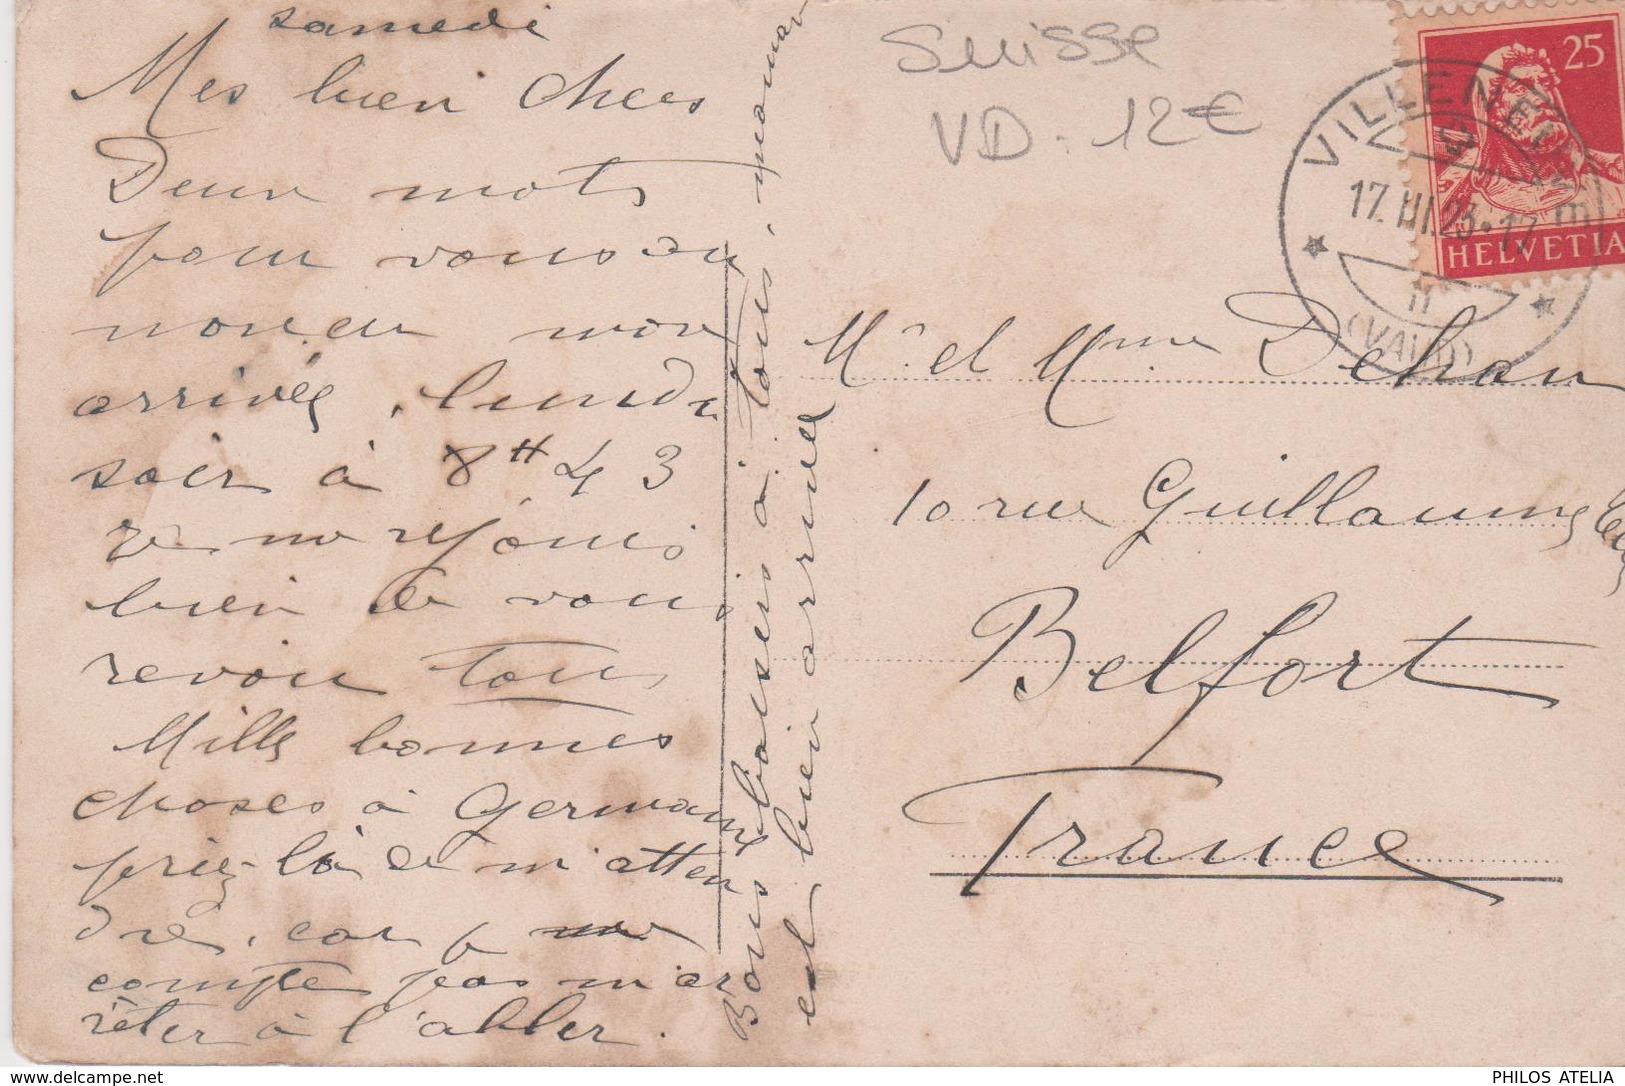 samedi
Mes bien chers
Deux mots
pour vous an
noncer mon
arrivée, lundi
soir à 8 H 43
Je me réjouis
bien de vous
revoir tous
Mille bonnes
choses à Germaine
priez-là de m'atten
dre, car je ne
compte pas m'ar
rêter à l'aller.
Bons baisers à tous, maman
est bien arrivée
Suisse
VD - 12€
25
HELVETIA
VILLENEUVE
17.III.23.17
(VAUD)
Mr et Mme Dehan
10 rue Guillaume Tell
Belfort
France
www.delcampe.net
PHILOS ATELIA